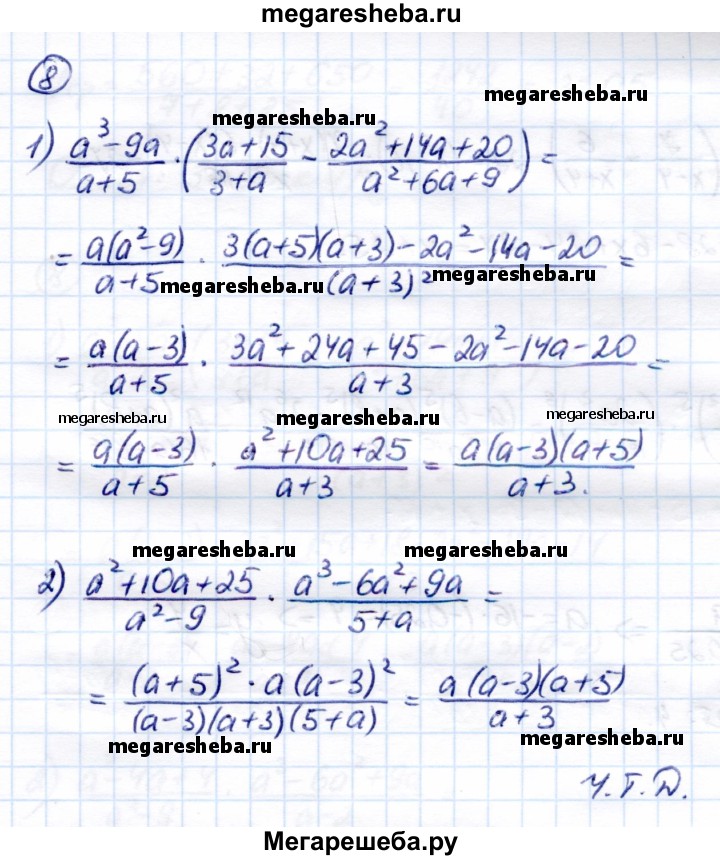 megaresheba.ru
8
megaresheba.ru
megaresheba.ru
1) (a³-9a)/(a+5) · ((3a+15)/(3+a) - (2a²+14a+20)/(a²+6a+9)) =
= (a(a²-9))/(a+5) · (3(a+5)(a+3)-2a²-14a-20)/((a+3)²) =
megaresheba.ru megaresheba.ru
= (a(a-3))/(a+5) · (3a²+24a+45-2a²-14a-20)/(a+3) =
megaresheba.ru megaresheba.ru megaresheba.ru
= (a(a-3))/(a+5) · (a²+10a+25)/(a+3) = (a(a-3)(a+5))/(a+3).
megaresheba.ru megaresheba.ru
2) (a²+10a+25)/(a²-9) · (a³-6a²+9a)/(5+a) =
= ((a+5)²·a(a-3)²)/((a-3)(a+3)(5+a)) = (a(a-3)(a+5))/(a+3)
megaresheba.ru megaresheba.ru
Ч.Т.Д.
Мегарешеба.ру